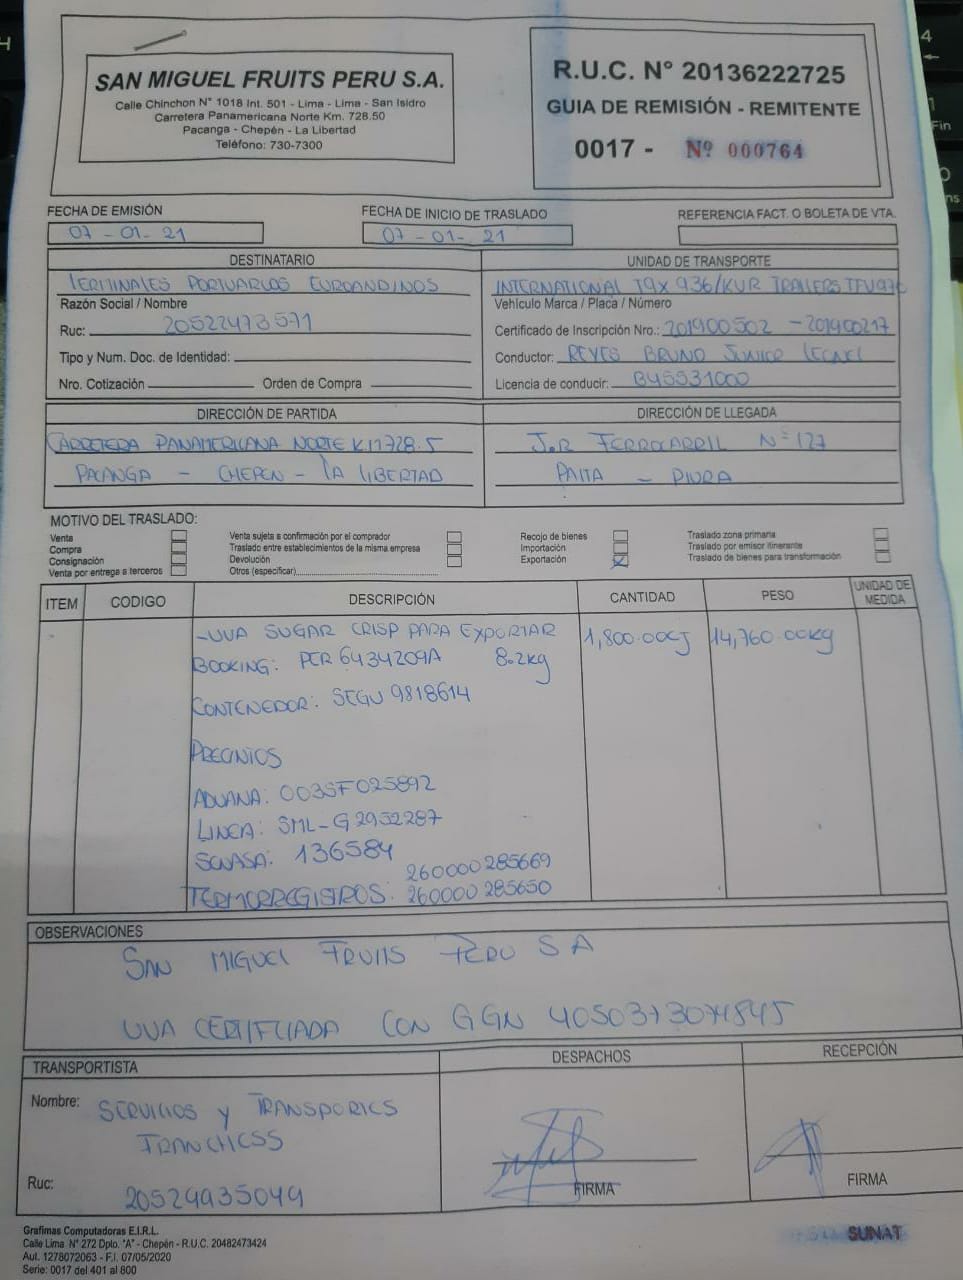 SAN MIGUEL FRUITS PERU S.A.
Calle Chinchon N° 1018 Int. 501 - Lima - Lima - San Isidro
Carretera Panamericana Norte Km. 728.50
Pacanga - Chepén - La Libertad
Teléfono: 730-7300
R.U.C. N° 20136222725
GUIA DE REMISIÓN - REMITENTE
0017 - Nº 000764
FECHA DE EMISIÓN
07-01-21
FECHA DE INICIO DE TRASLADO
07-01-21
REFERENCIA FACT. O BOLETA DE VTA.
DESTINATARIO
TERMINALES PORTUARIOS EUROANDINOS
Razón Social / Nombre
Ruc: 20522473571
Tipo y Num. Doc. de Identidad:
Nro. Cotización Orden de Compra
UNIDAD DE TRANSPORTE
INTERNATIONAL T9X 936/KUR TRAILERS
Vehículo Marca / Placa / Número
Certificado de Inscripción Nro.: 201900502 - 201900217
Conductor: REYES BRUNO JUNIOR
Licencia de conducir: B45531000
DIRECCIÓN DE PARTIDA
CARRETERA PANAMERICANA NORTE KM728.5
PACANGA - CHEPEN - LA LIBERTAD
DIRECCIÓN DE LLEGADA
J.R FERROCARRIL N=127
PAITA - PIURA
MOTIVO DEL TRASLADO:
Venta
Compra
Consignación
Venta por entrega a terceros
Venta sujeta a confirmación por el comprador
Traslado entre establecimientos de la misma empresa
Devolución
Otros (especificar)
Recojo de bienes
Importación
Exportación
Traslado zona primaria
Traslado por emisor itinerante
Traslado de bienes para transformación
ITEM CODIGO DESCRIPCIÓN CANTIDAD PESO UNIDAD DE MEDIDA
-UVA SUGAR CRISP PARA EXPORTAR 1,800.00CJ 14,760.00kg
BOOKING: PER 6434209A 8.2kg
CONTENEDOR: SEGU 9818614
PRECINTOS
ADUANA: 003SF025892
LINEA: SML-G2952287
SENASA: 136584
260000285669
TERMORREGISTROS: 260000285650
OBSERVACIONES
SAN MIGUEL FRUITS PERU SA
UVA CERTIFCIADA CON GGN 4050373074845
TRANSPORTISTA
Nombre: SERVICIOS y TRANSPORTES
TRANCHESS
Ruc: 20529935049
DESPACHOS
FIRMA
RECEPCIÓN
FIRMA
Grafimas Computadoras E.I.R.L.
Calle Lima N° 272 Dpto. "A" - Chepén - R.U.C. 20482473424
Aut. 1278072063 - F.I. 07/05/2020
Serie: 0017 del 401 al 800
SUNAT